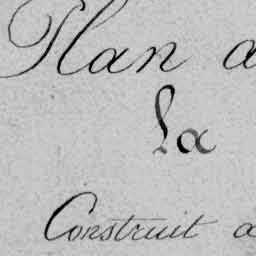 Plan a
La
Construit a